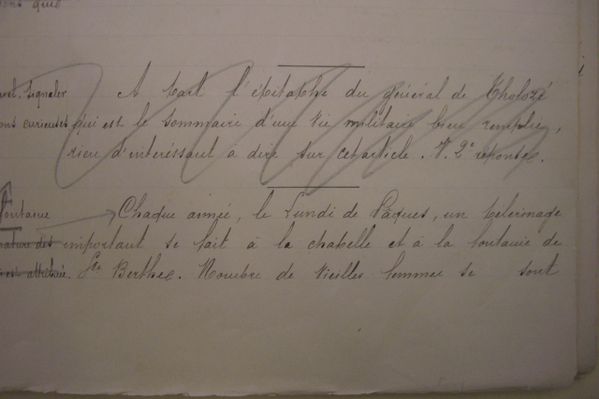 A part l'épitaphe du général de Tholozé
ons curieuses qui est le sommaire d'une vie militaire bien remplie,
rien d'intéressant à dire sur cet article. V. 2e réponse.
fontaine Chaque année, le Lundi de Pâques, un pèlerinage
nature des important se fait à la chapelle et à la fontaine de
est attribuée. Ste Berthe. Nombre de vieilles femmes se sont